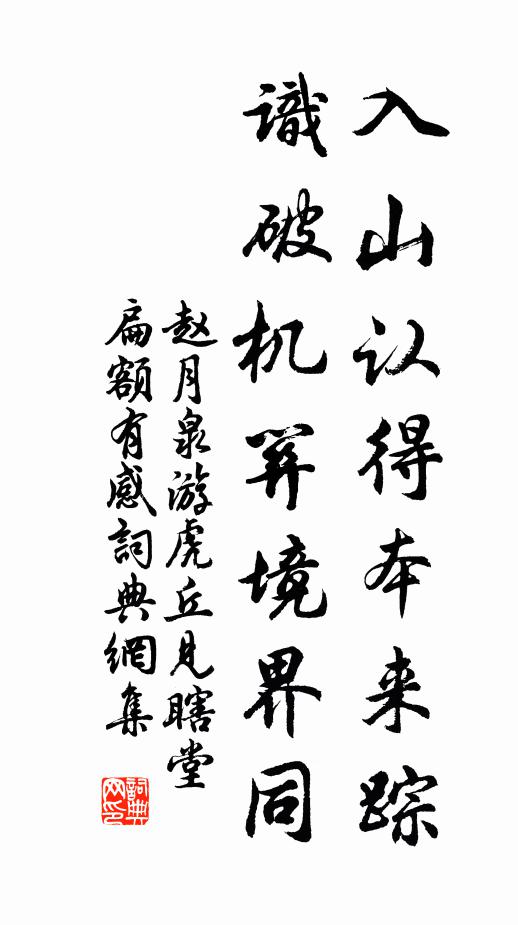 入山认得本来踪
識破机关境界同
赵月泉游虎丘见瞎堂
扁額有感詞典網集
詞典网印